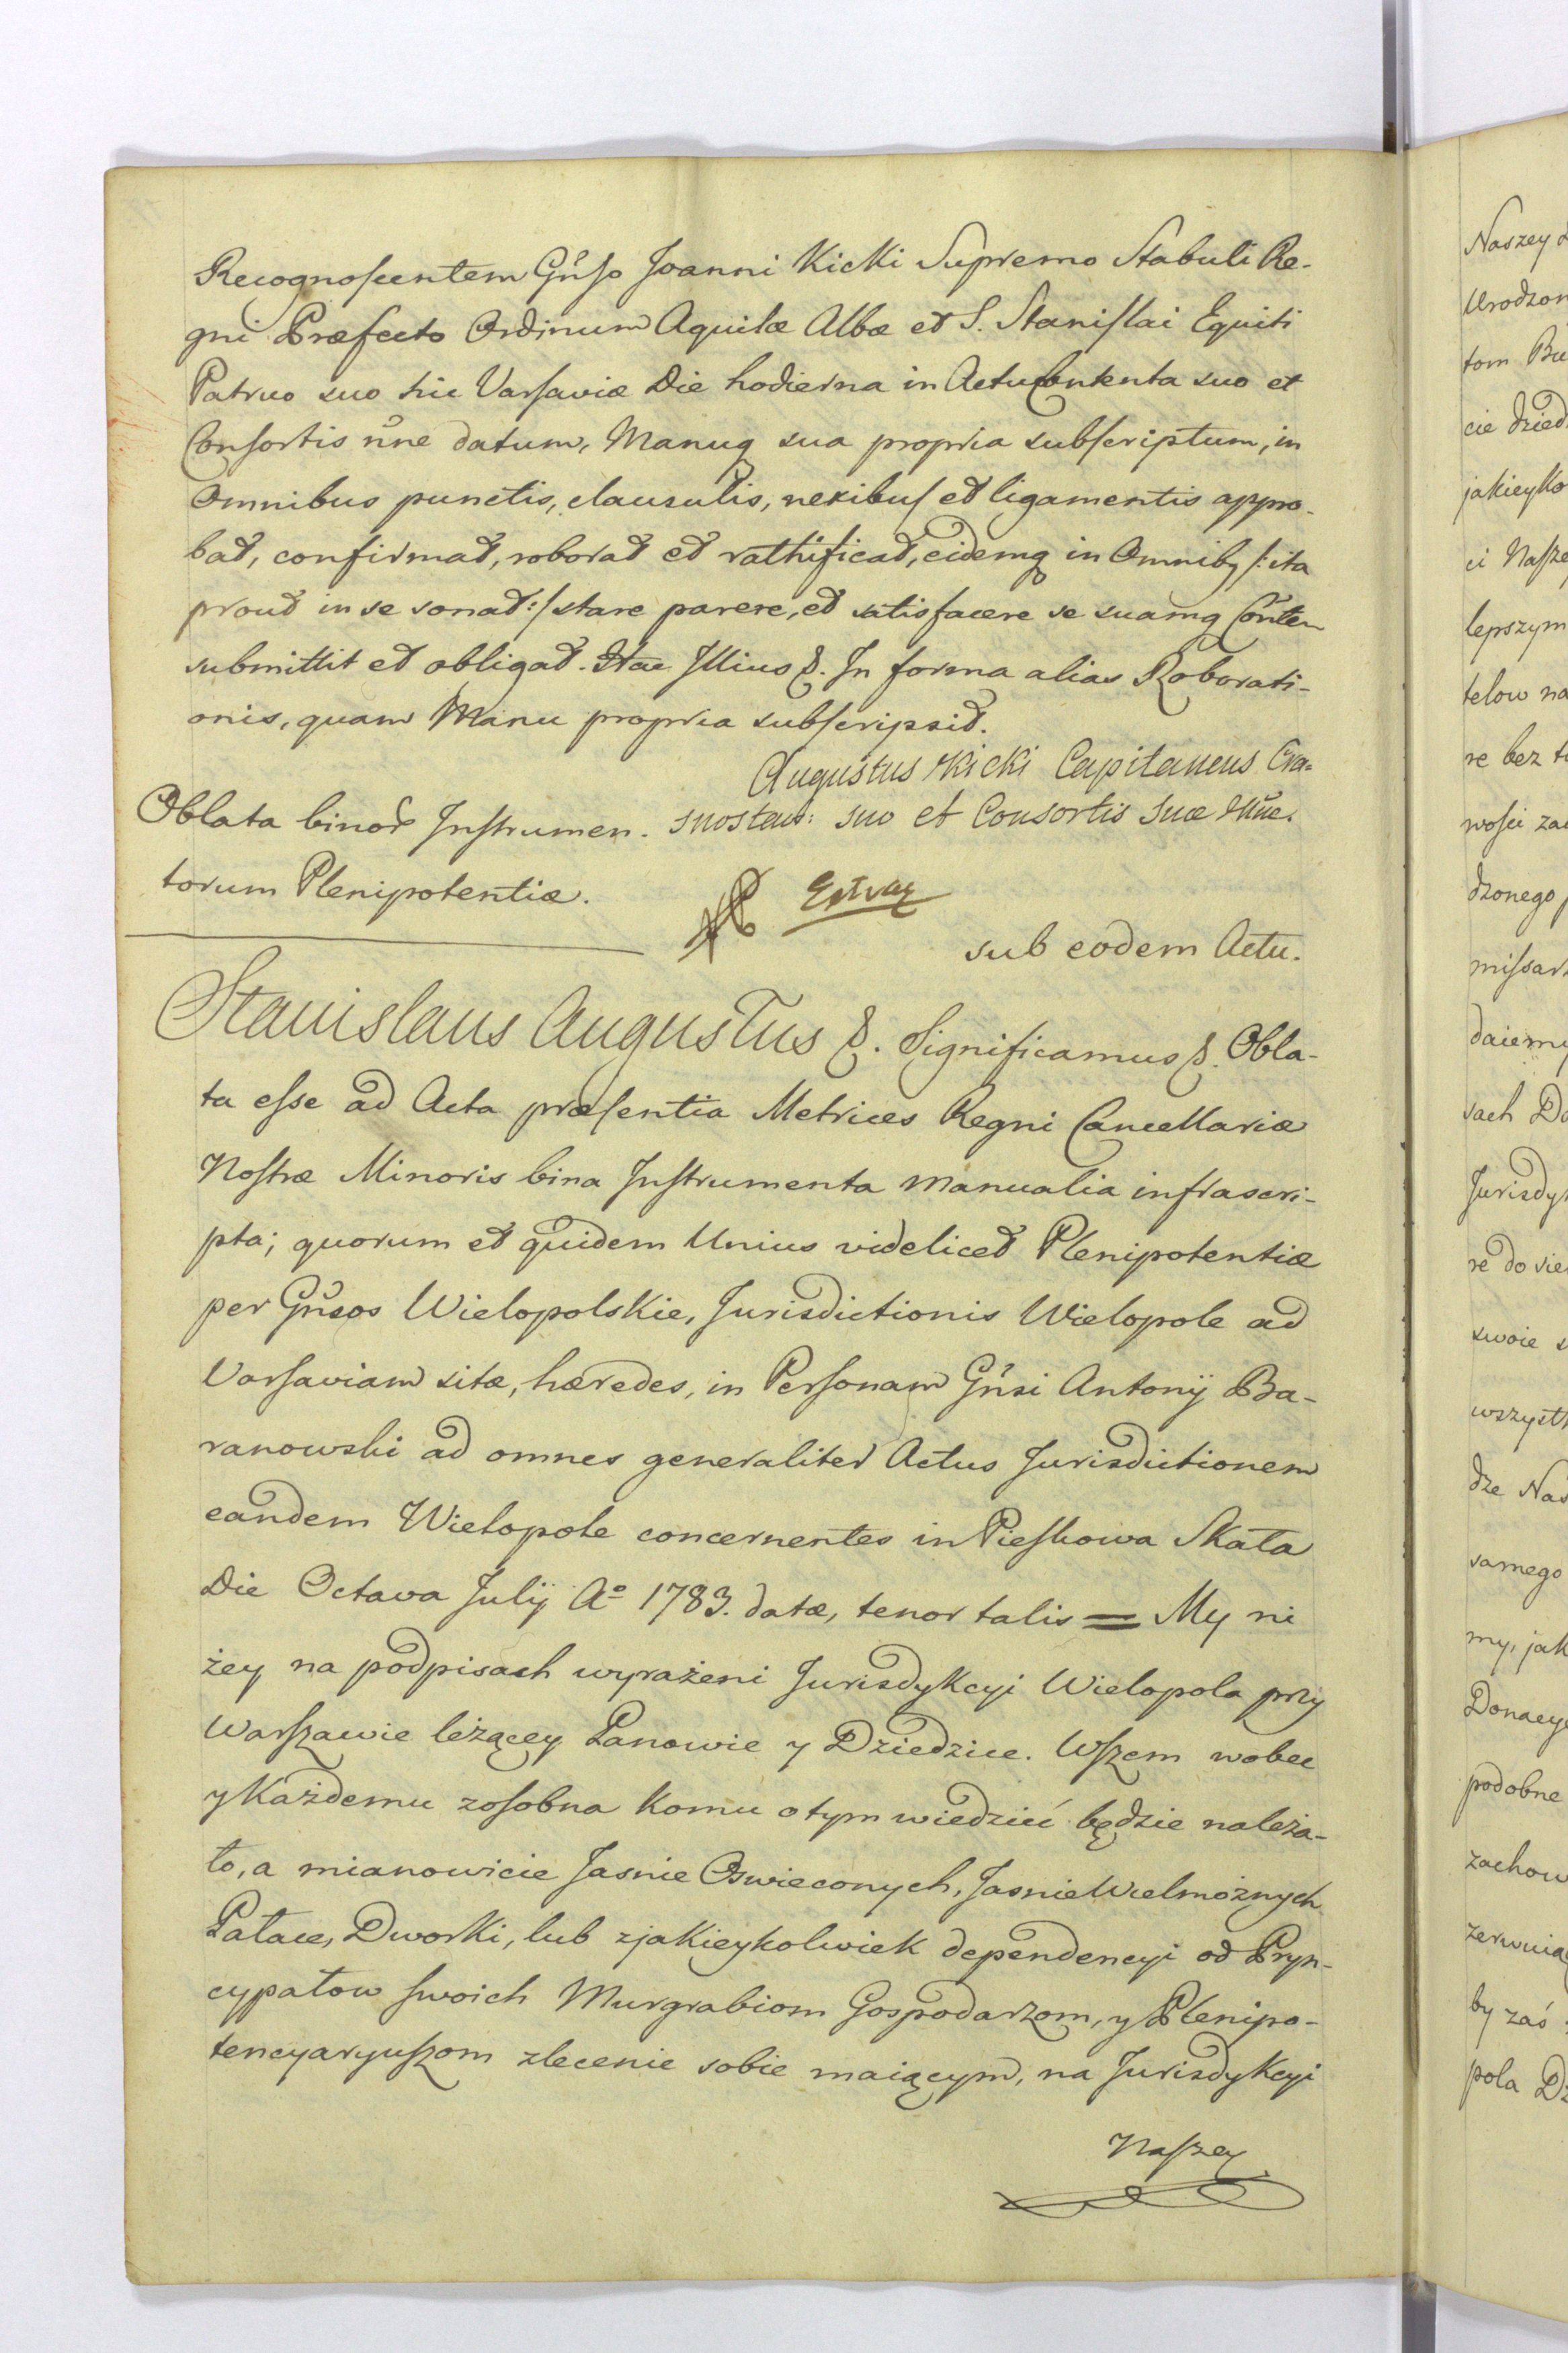 Recognoscentem Gnso Joanni Kicki Supremo Stabuli Re-
gni Præfecto Ordinum Aquilæ Albæ et S. Stanislai Equiti
Patruo suo hic Varsaviæ Die hodierna in Actu Contenta suo et
Consortis nne datum, Manuq sua propria subscriptum, in
Omnibus punctis, clausulis, nexibus et ligamentis appro-
bat, confirmat, roborat et rathificat, eidemq in Omnibq /: ita
prout in se sonat :/ stare parere, et satisfacere se suamq Conten
submittit et obligat. Hac Illius &. In forma alias Roborati-
onis, quam Manu propria subscripsit.
Augustus Kicki Capitaneus Cra=
snostaus: suo et Consortis Suæ Nne.
Oblata binor Instrumen-
torum Plenipotentiæ.
sub eodem Actu.
Stanislaus Augustus &. Significamus &. Obla-
ta esse ad Acta præsentia Metrices Regni Cancellariæ
Nostræ Minoris bina Instrumenta manualia infrascri-
pta; quorum et quidem Unius videlicet Plenipotentiæ
per Gnsos Wielopolskie, Jurisdictionis Wielopole ad
Varsaviam sitæ, hæredes, in Personam Gnsi Antonij Ba-
ranowski ad omnes generaliter Actus Jurisdictionem
eandem Wielopole concernentes in Pieskowa Skała
Die Octava Julij Aº 1783. datæ, tenor talis = My ni
żey na podpisach wyrażeni Jurisdykcyi Wielopola przy
Warszawie leżącey Panowie y Dziedzice. Wszem wobec
y Każdemu zosobna komu otym wiedzieć będzie należa-
ło, a mianowicie Jasnie Oswieconych, Jasnie Wielmożnych
Pałace, Dworki, lub zjakieykolwiek dependencyi od Pryn-
cypałow swoich Murgrabiom Gospodarzom, y Plenipo-
tencyaryuszom zlecenie sobie maiącym, na Jurisdykcyi
Naszey
Naszey
Urodzon
tom
cie dzied
jakieyko
ci Nasze
lepszym
telow na
re bez
wości za
dzonego
missar
daiemy
sach Do
Jurisdy
re do
swoie
wszystk
dze Nas
samego
my, jak
Donacy
podobne
zachow
by zaś
pola